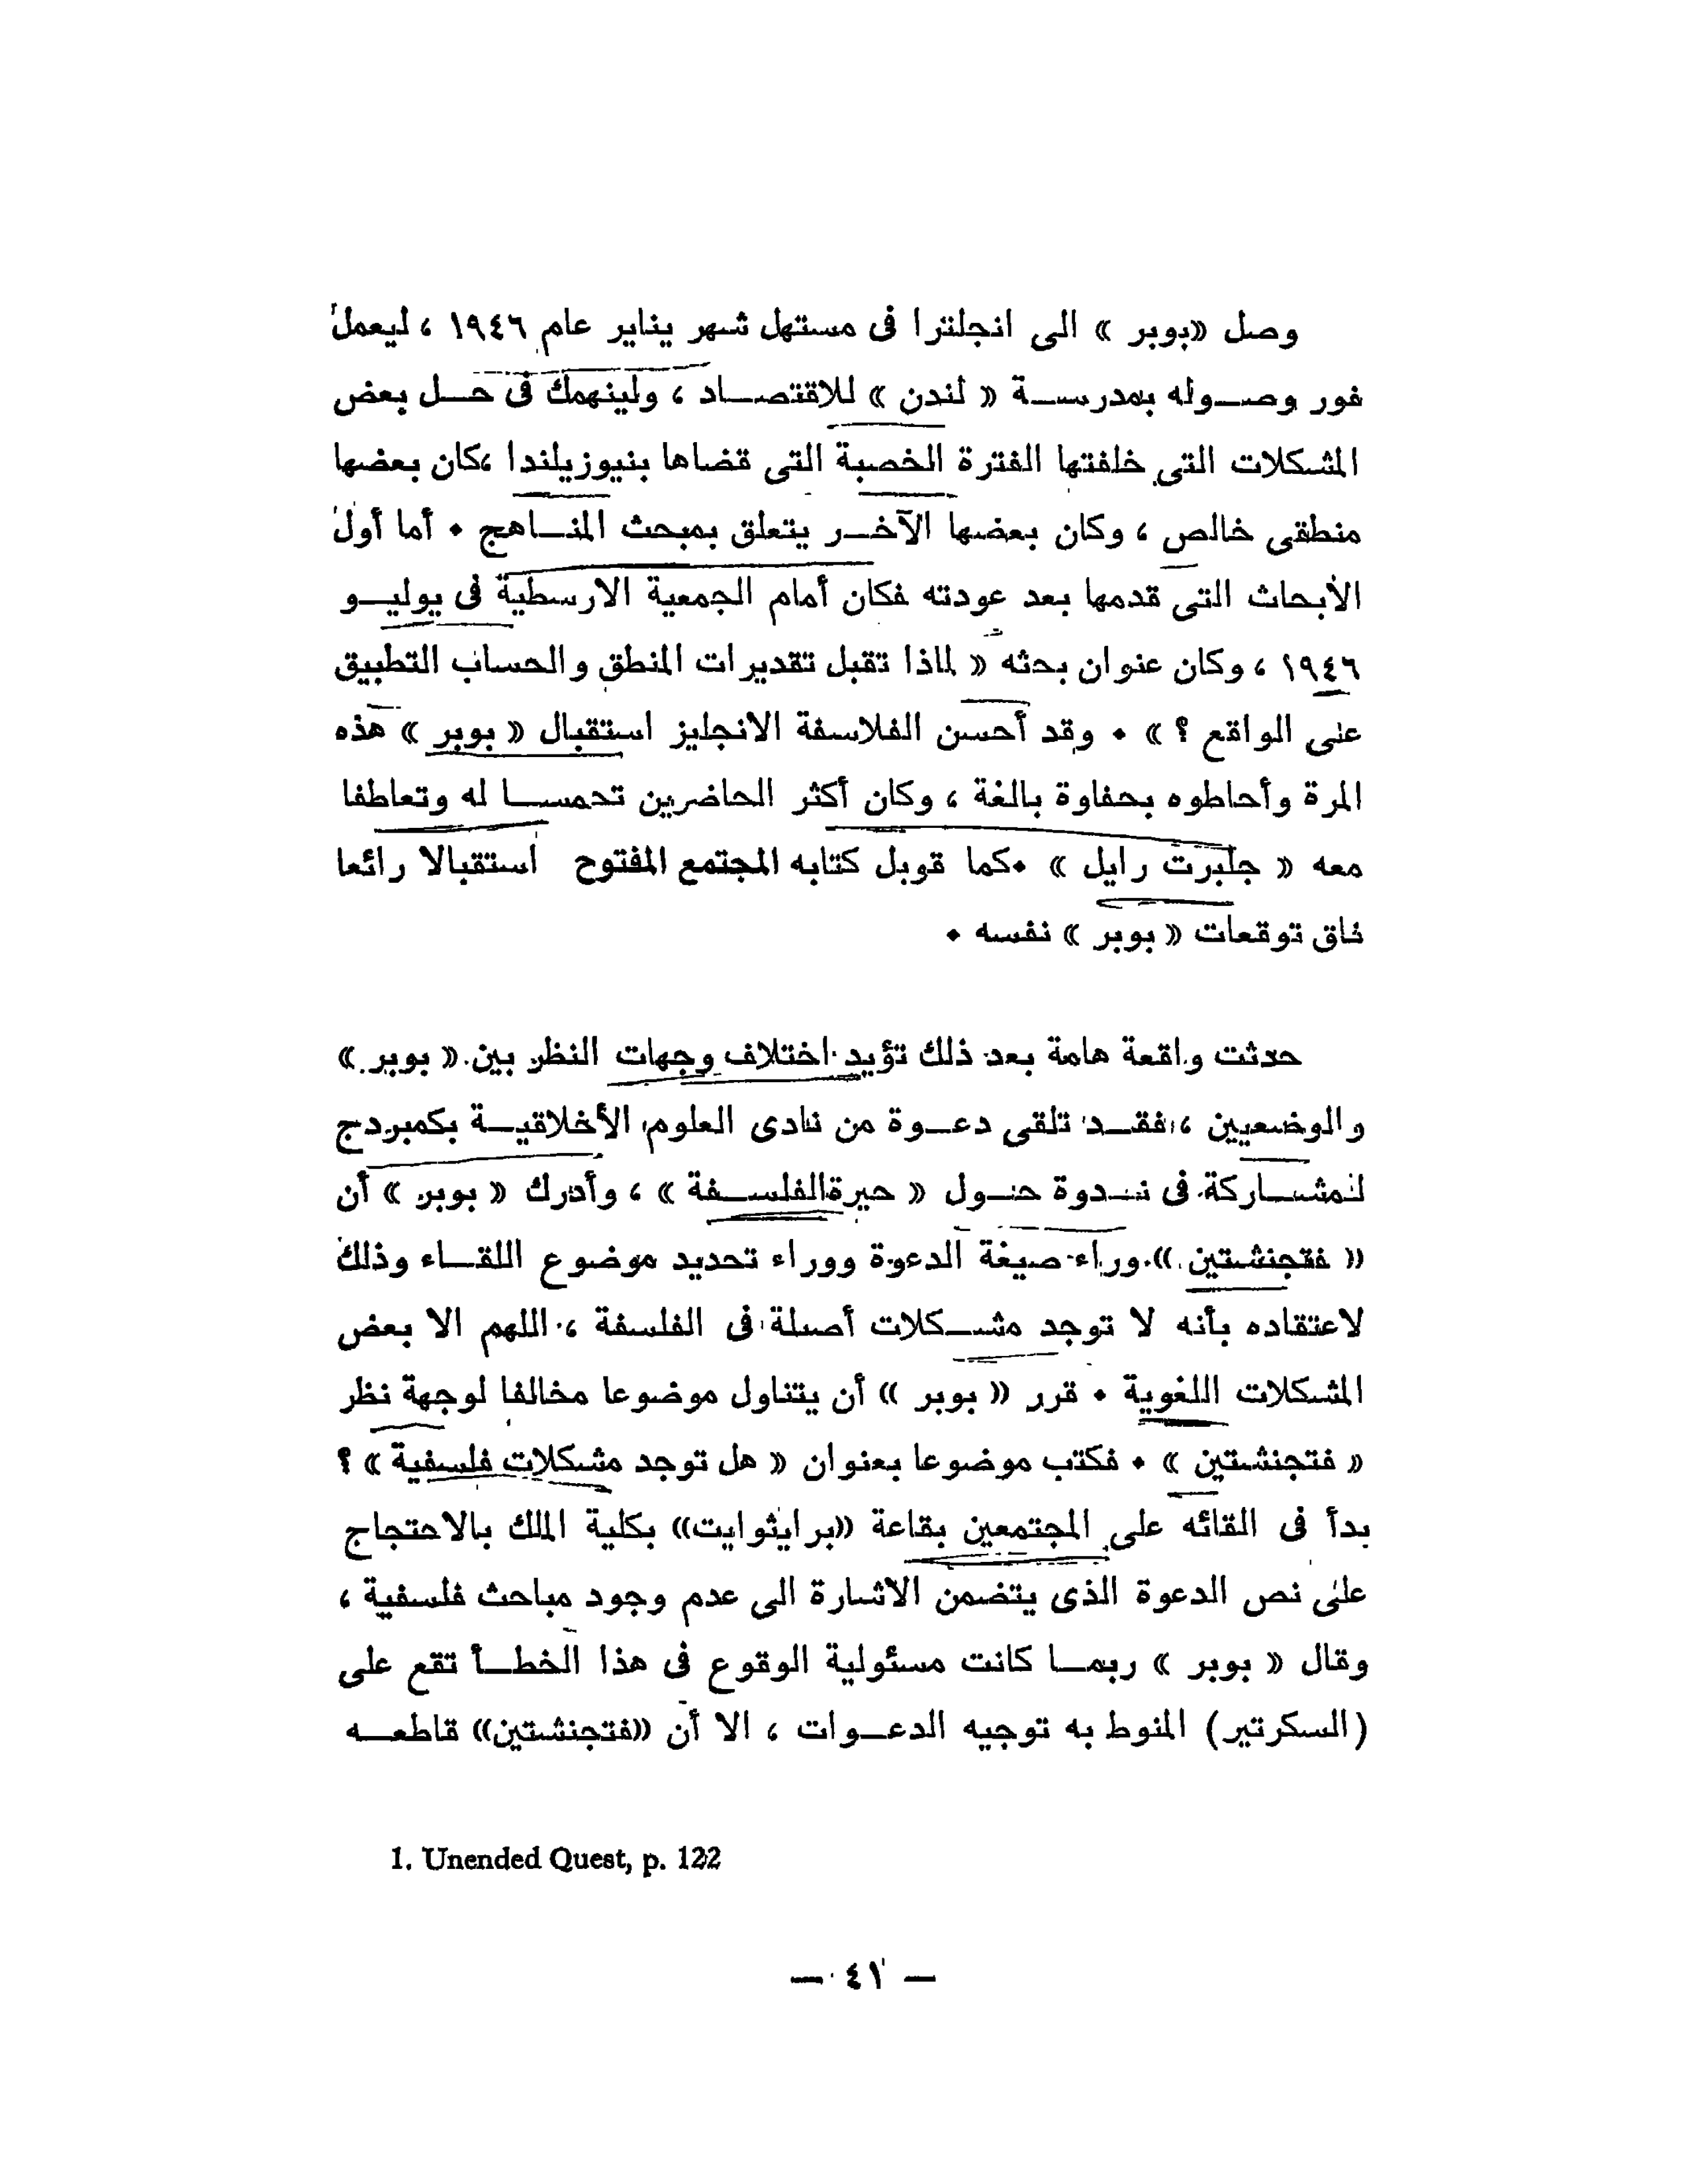 وصل «بوبر» الى انجلترا فى مستهل شهر يناير عام ١٩٤٦ ، ليعمل
فور وصـوله بمدرسـة « لندن » للاقتصـاد ، ولينهمك فى حـل بعض
المشكلات التى خلفتها الفترة الخصبة التى قضاها بنيوزيلندا ،كان بعضها
منطقى خالص ، وكان بعضها الآخـر يتعلق بمبحث المنـاهج • أما أول
الأبحاث التى قدمها بعد عودته فكان أمام الجمعية الارسطية فى يوليـو
١٩٤٦ ، وكان عنوان بحثه « لماذا تقبل تقديرات المنطق والحساب التطبيق
على الواقع ؟ » • وقد أحسن الفلاسفة الانجليز استقبال « بوبر » هذه
المرة وأحاطوه بحفاوة بالغة ، وكان أكثر الحاضرين تحمسـا له وتعاطفا
معه « جلبرت رايل » •كما قوبل كتابه المجتمع المفتوح استقبالا رائعا
فاق توقعات « بوبر » نفسه •
حدثت واقعة هامة بعد ذلك تؤيد اختلاف وجهات النظر بين « بوبر »
والوضعيين ، فقـد تلقى دعـوة من نادى العلوم الأخلاقيـة بكمبردج
لمشـاركة فى نـدوة حـول « حيرةالفلسـفة » ، وأدرك « بوبر » أن
« فتجنشتين » وراء صيغة الدعوة ووراء تحديد موضوع اللقـاء وذلك
لاعتقاده بأنه لا توجد مشـكلات أصيلة فى الفلسفة ، اللهم الا بعض
المشكلات اللغوية • قرر « بوبر » أن يتناول موضوعا مخالفا لوجهة نظر
« فتجنشتين » • فكتب موضوعا بعنوان « هل توجد مشكلات فلسفية » ؟
بدأ فى القائه على المجتمعين بقاعة «برايثوايت» بكلية الملك بالاحتجاج
على نص الدعوة الذى يتضمن الاشارة الى عدم وجود مباحث فلسفية ،
وقال « بوبر » ربمـا كانت مسئولية الوقوع فى هذا الخطـأ تقع على
(السكرتير) المنوط به توجيه الدعـوات ، الا أن «فتجنشتين» قاطعـه
1. Unended Quest, p. 122
— ٤١ —